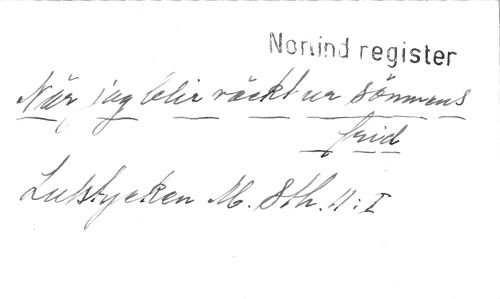 Nomind register
När jag blir väckt ur sömnens
frid
Lutstycken M. Sth. 11:I